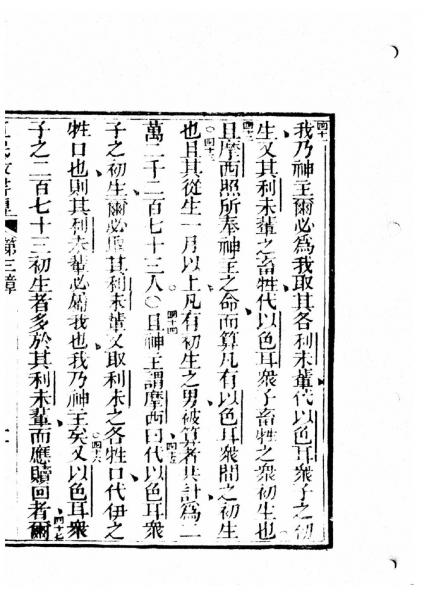 四十一我乃神主爾必為我取其各利未輩代以色耳衆子之初
生又其利未輩之畜牲代以色耳衆子畜牲之衆初生也
四十二且摩西照所奉神主之命而算凡有以色耳衆間之初生
四十三也且其從生一月以上凡有初生之男被算者共計為二
萬二千二百七十三人四十四〇且神主謂摩西曰四十五代以色耳衆
子之初生爾必取其利未輩又取利未之各牲口代伊之
牲口也則其利未輩必屬我也我乃神主矣四十六又以色耳衆
子之二百七十三初生者多於其利未輩而應贖回者四十七爾
民數書 第三章